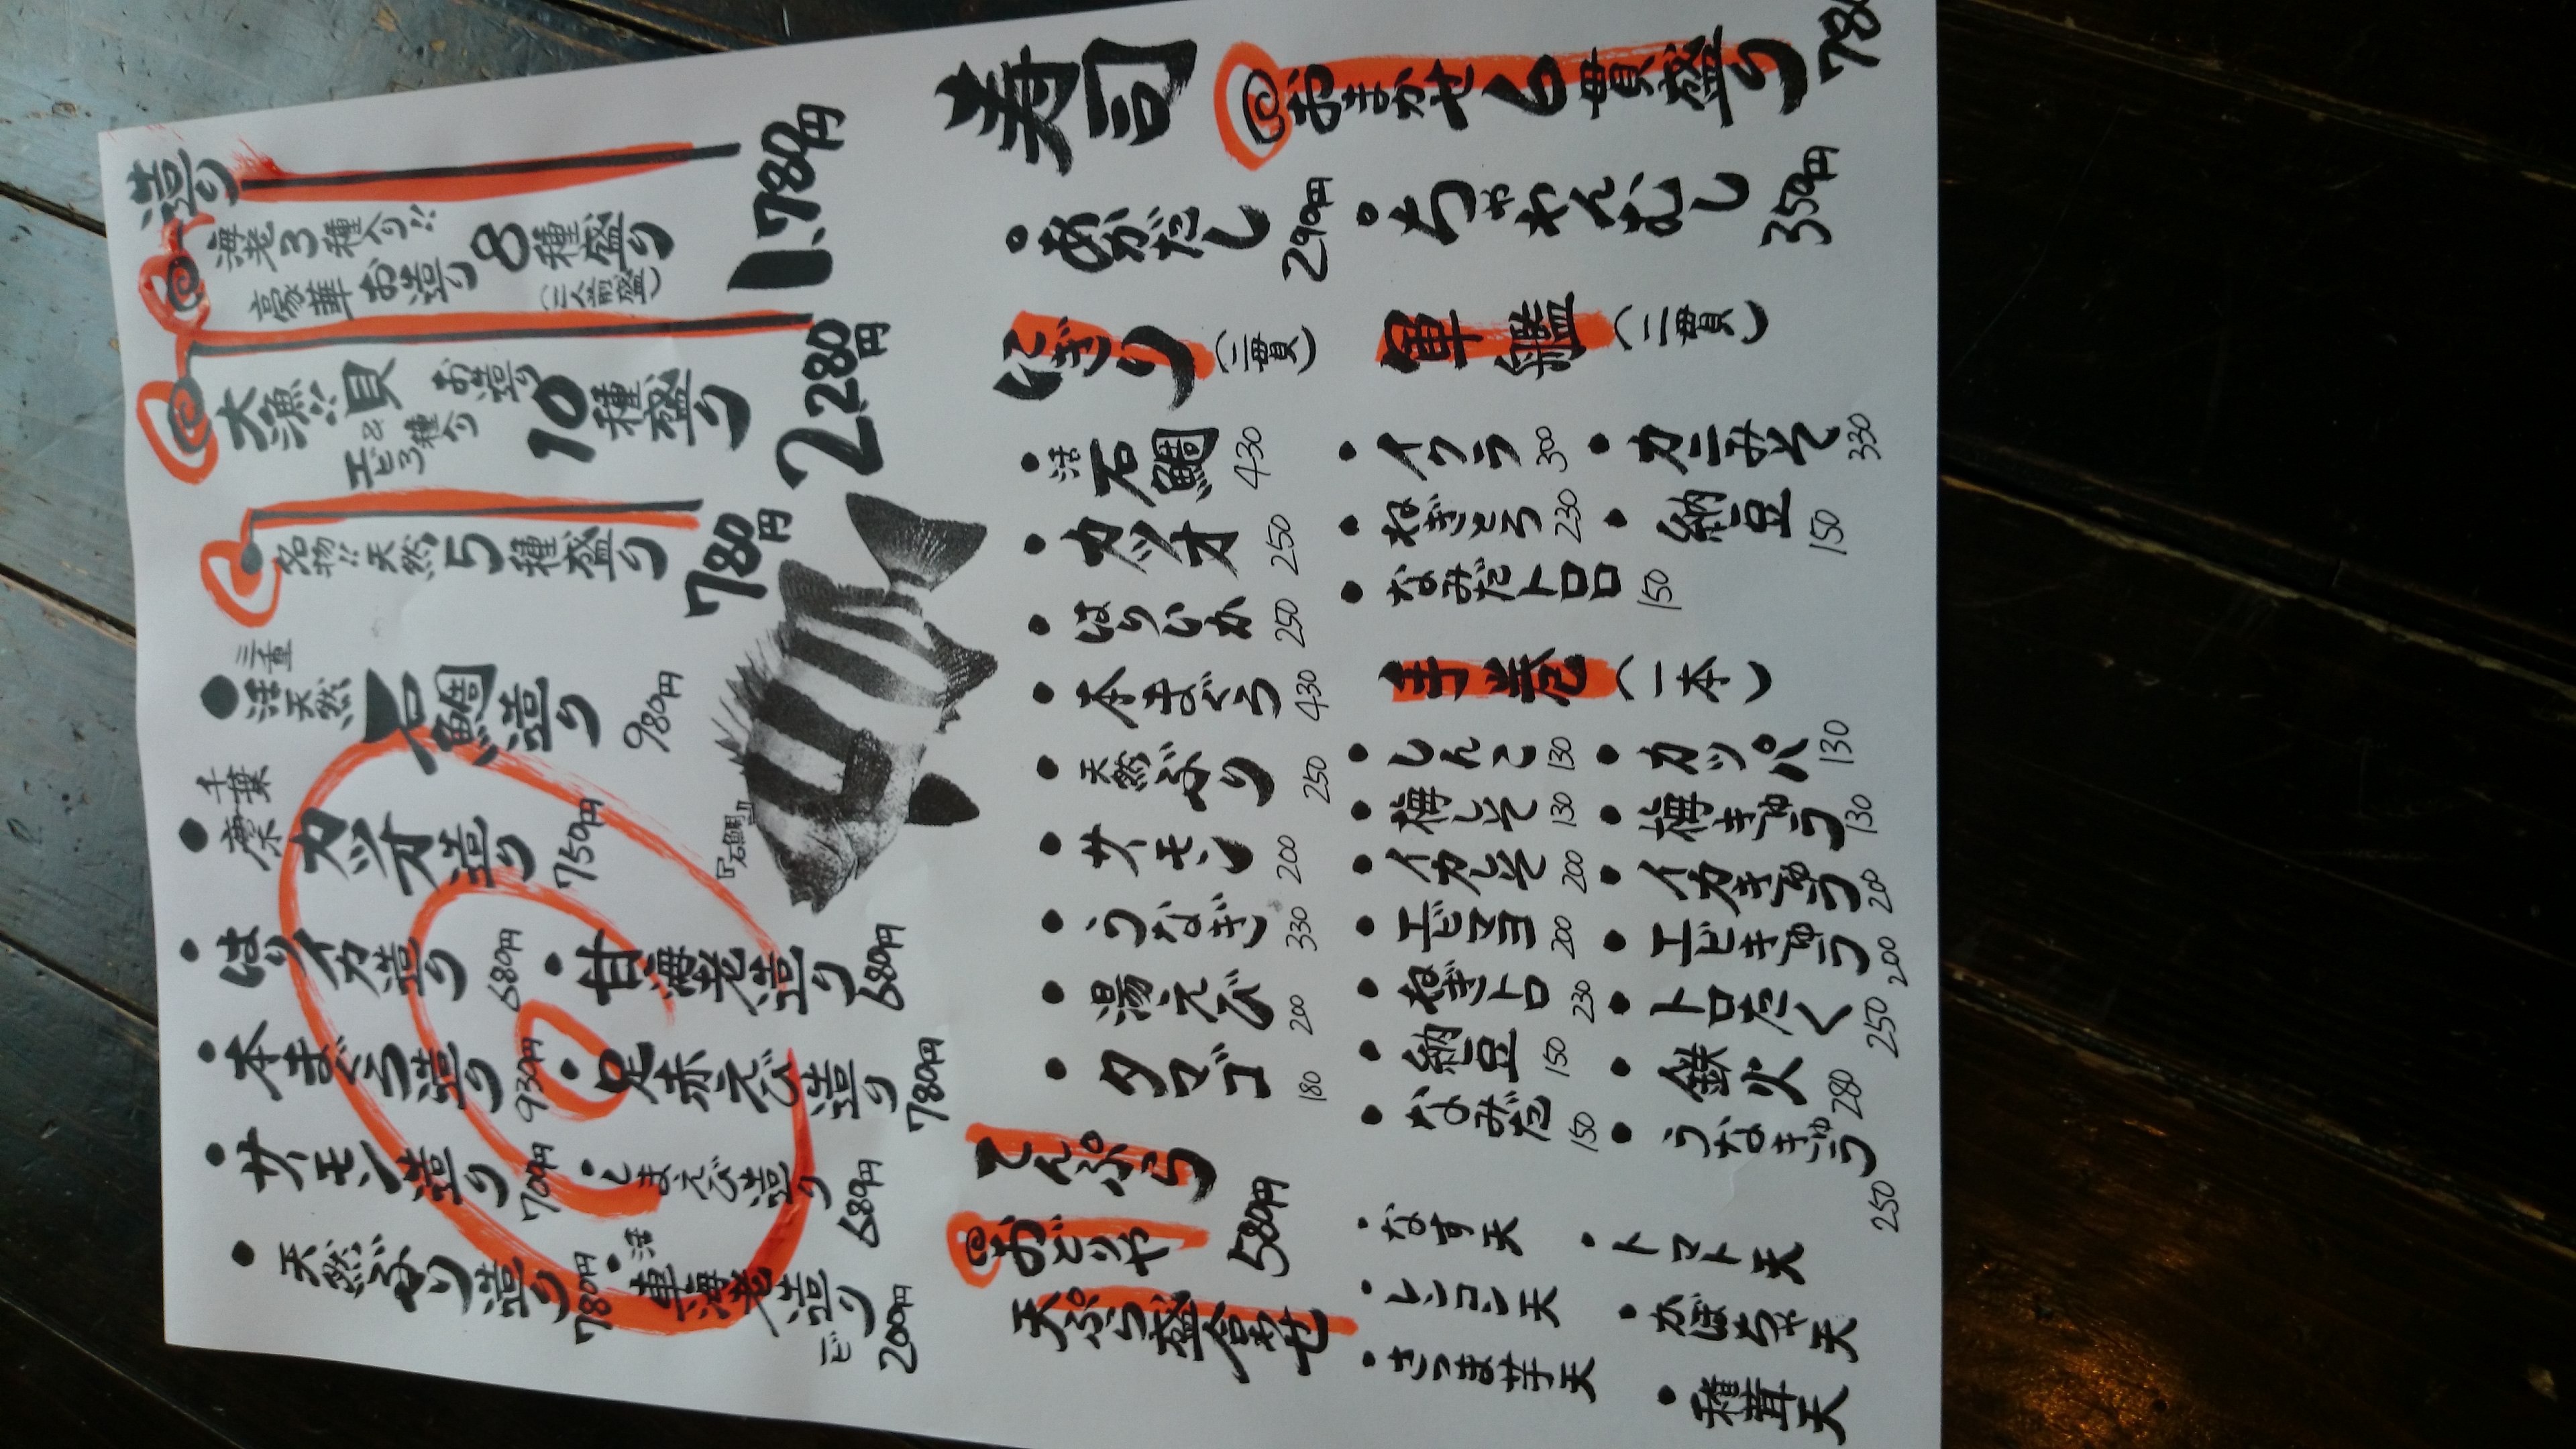 造り
海老3種入り!!
豪華お造り8種盛り
(二人前盛)
1,780円
大漁!!貝
エビ3種入り
お造り10種盛り
2,280円
名物!!天然5種盛り
780円
・三重
活天然石鯛造り
980円
・千葉
カツオ造り
750円
・はりイカ造り
680円
・甘海老造り
680円
・本まぐろ造り
930円
・足赤えび造り
780円
・サーモン造り
700円
・しまえび造り
680円
・天然ぶり造り
780円
・活車海老造り
一ピ200円
『石鯛』
寿司
おまかせ6貫盛り
78
・あかだし
290円
・ちゃわんむし
350円
にぎり(二貫)
・活石鯛 430
・カツオ 250
・はりいか 250
・本まぐろ 430
・天然ぶり 250
・サーモン 200
・うなぎ 330
・湯えび 200
・タマゴ 180
軍艦(二貫)
・イクラ 300
・カニみそ 330
・ねぎとろ 230
・納豆 150
・なみだトロロ 150
手巻(一本)
・しんこ 130
・カッパ 130
・梅しそ 130
・梅きゅう 130
・イカしそ 200
・イカきゅう 200
・エビマヨ 200
・エビきゅう 200
・ねぎトロ 230
・トロたく 250
・納豆 150
・鉄火 280
・なみだ 150
・うなきゅう 250
てんぷら
おどりや
天ぷら盛合わせ
580円
・なす天
・トマト天
・レンコン天
・かぼちゃ天
・さつま芋天
・椎茸天